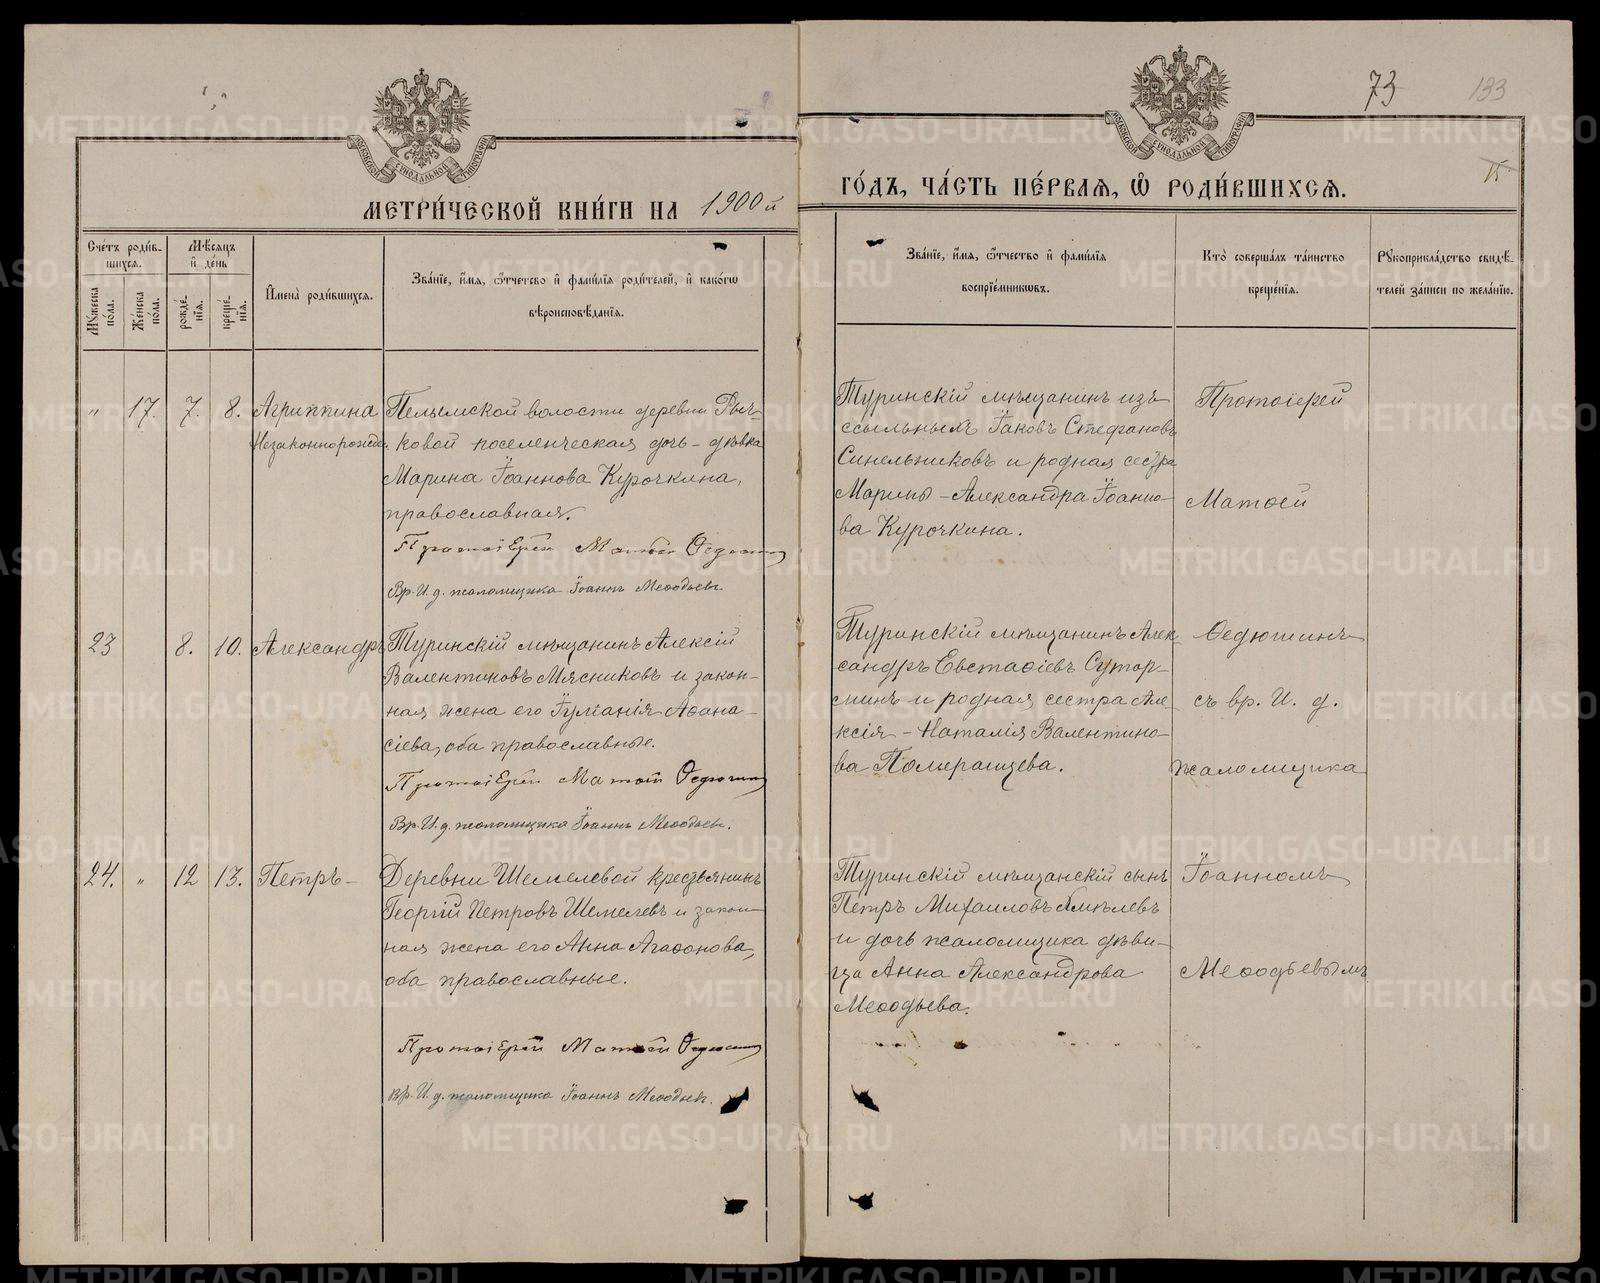 73
133
МОСКОВСКОЙ СѴНОДАЛЬНОЙ ТИПОГРАФІИ
МОСКОВСКОЙ СѴНОДАЛЬНОЙ ТИПОГРАФІИ
МЕТРИ́ЧЕСКОЙ КНИ́ГИ НА 1900й
ГО́ДЪ, ЧА́СТЬ ПЕ́РВАѦ, Ѡ҆ РОДИ́ВШИХСѦ.
Сче́тъ роди́в-
шихсѧ.
Мꙋ́жеска по́ла.
Же́нска по́ла.
Мѣ́сѧцъ
и҆ де́нь
рожде́-
нїѧ.
креще́-
нїѧ.
И҆мена̀ роди́вшихсѧ.
Зва́нїе, и҆́мѧ, ѻ҆́тчетсво и҆ фами́лїѧ роди́телей, и҆ како́гѡ
вѣроисповѣ́данїѧ.
Зва́нїе, и҆́мѧ, ѻ҆́тчество и҆ фами́лїѧ
воспрїе́мникѡвъ.
Кто̀ соверша́лъ та́инство
креще́нїѧ.
Рꙋкоприкла́дство свидѣ́-
телей за́писи по жела́нїю.
" 17. 7. 8. Агриппина
Незаконнорожден.
Пелымской волости деревни Рыч-
ковой поселенческая дочь - дѣвка
Марина Іоаннова Курочкина,
православная.
Протоіерей Матѳей Ѳедюшинъ
Вр. И. д. псаломщика Іоаннъ Меѳодьевъ.
Туринскій мѣщанинъ изъ
ссыльныхъ Іаковъ Стефановъ
Синельниковъ и родная сестра
Марины - Александра Іоанно-
ва Курочкина.
Протоіерей
Матѳей
23 8. 10. Александръ
Туринскій мѣщанинъ Алексій
Валентиновъ Мясниковъ и закон-
ная жена его Іуліанія Аѳана-
сіева, оба православные.
Протоіерей Матѳей Ѳедюшинъ
Вр. И. д. псаломщика Іоаннъ Меѳодьевъ.
Туринскій мѣщанинъ Алек-
сандръ Евстаѳіевъ Сутор-
минъ и родная сестра Але-
ксія - Наталія Валентино-
ва Померанцева.
Ѳедюшинъ
съ вр. И. д.
псаломщика
24. " 12 13. Петръ -
Деревни Шемелевой крестьянинъ
Георгій Петровъ Шемелевъ и закон-
ная жена его Анна Агаѳонова,
оба православные.
Протоіерей Матѳей Ѳедюшинъ
Вр. И. д. псаломщика Іоаннъ Меѳодьевъ.
Туринскій мѣщанскій сынъ
Петръ Михаиловъ
и дочь псаломщика дѣви-
ца Анна Александрова
Меѳодьева.
Іоанномъ
Меѳодьевымъ
METRIKI.GASO-URAL.RU